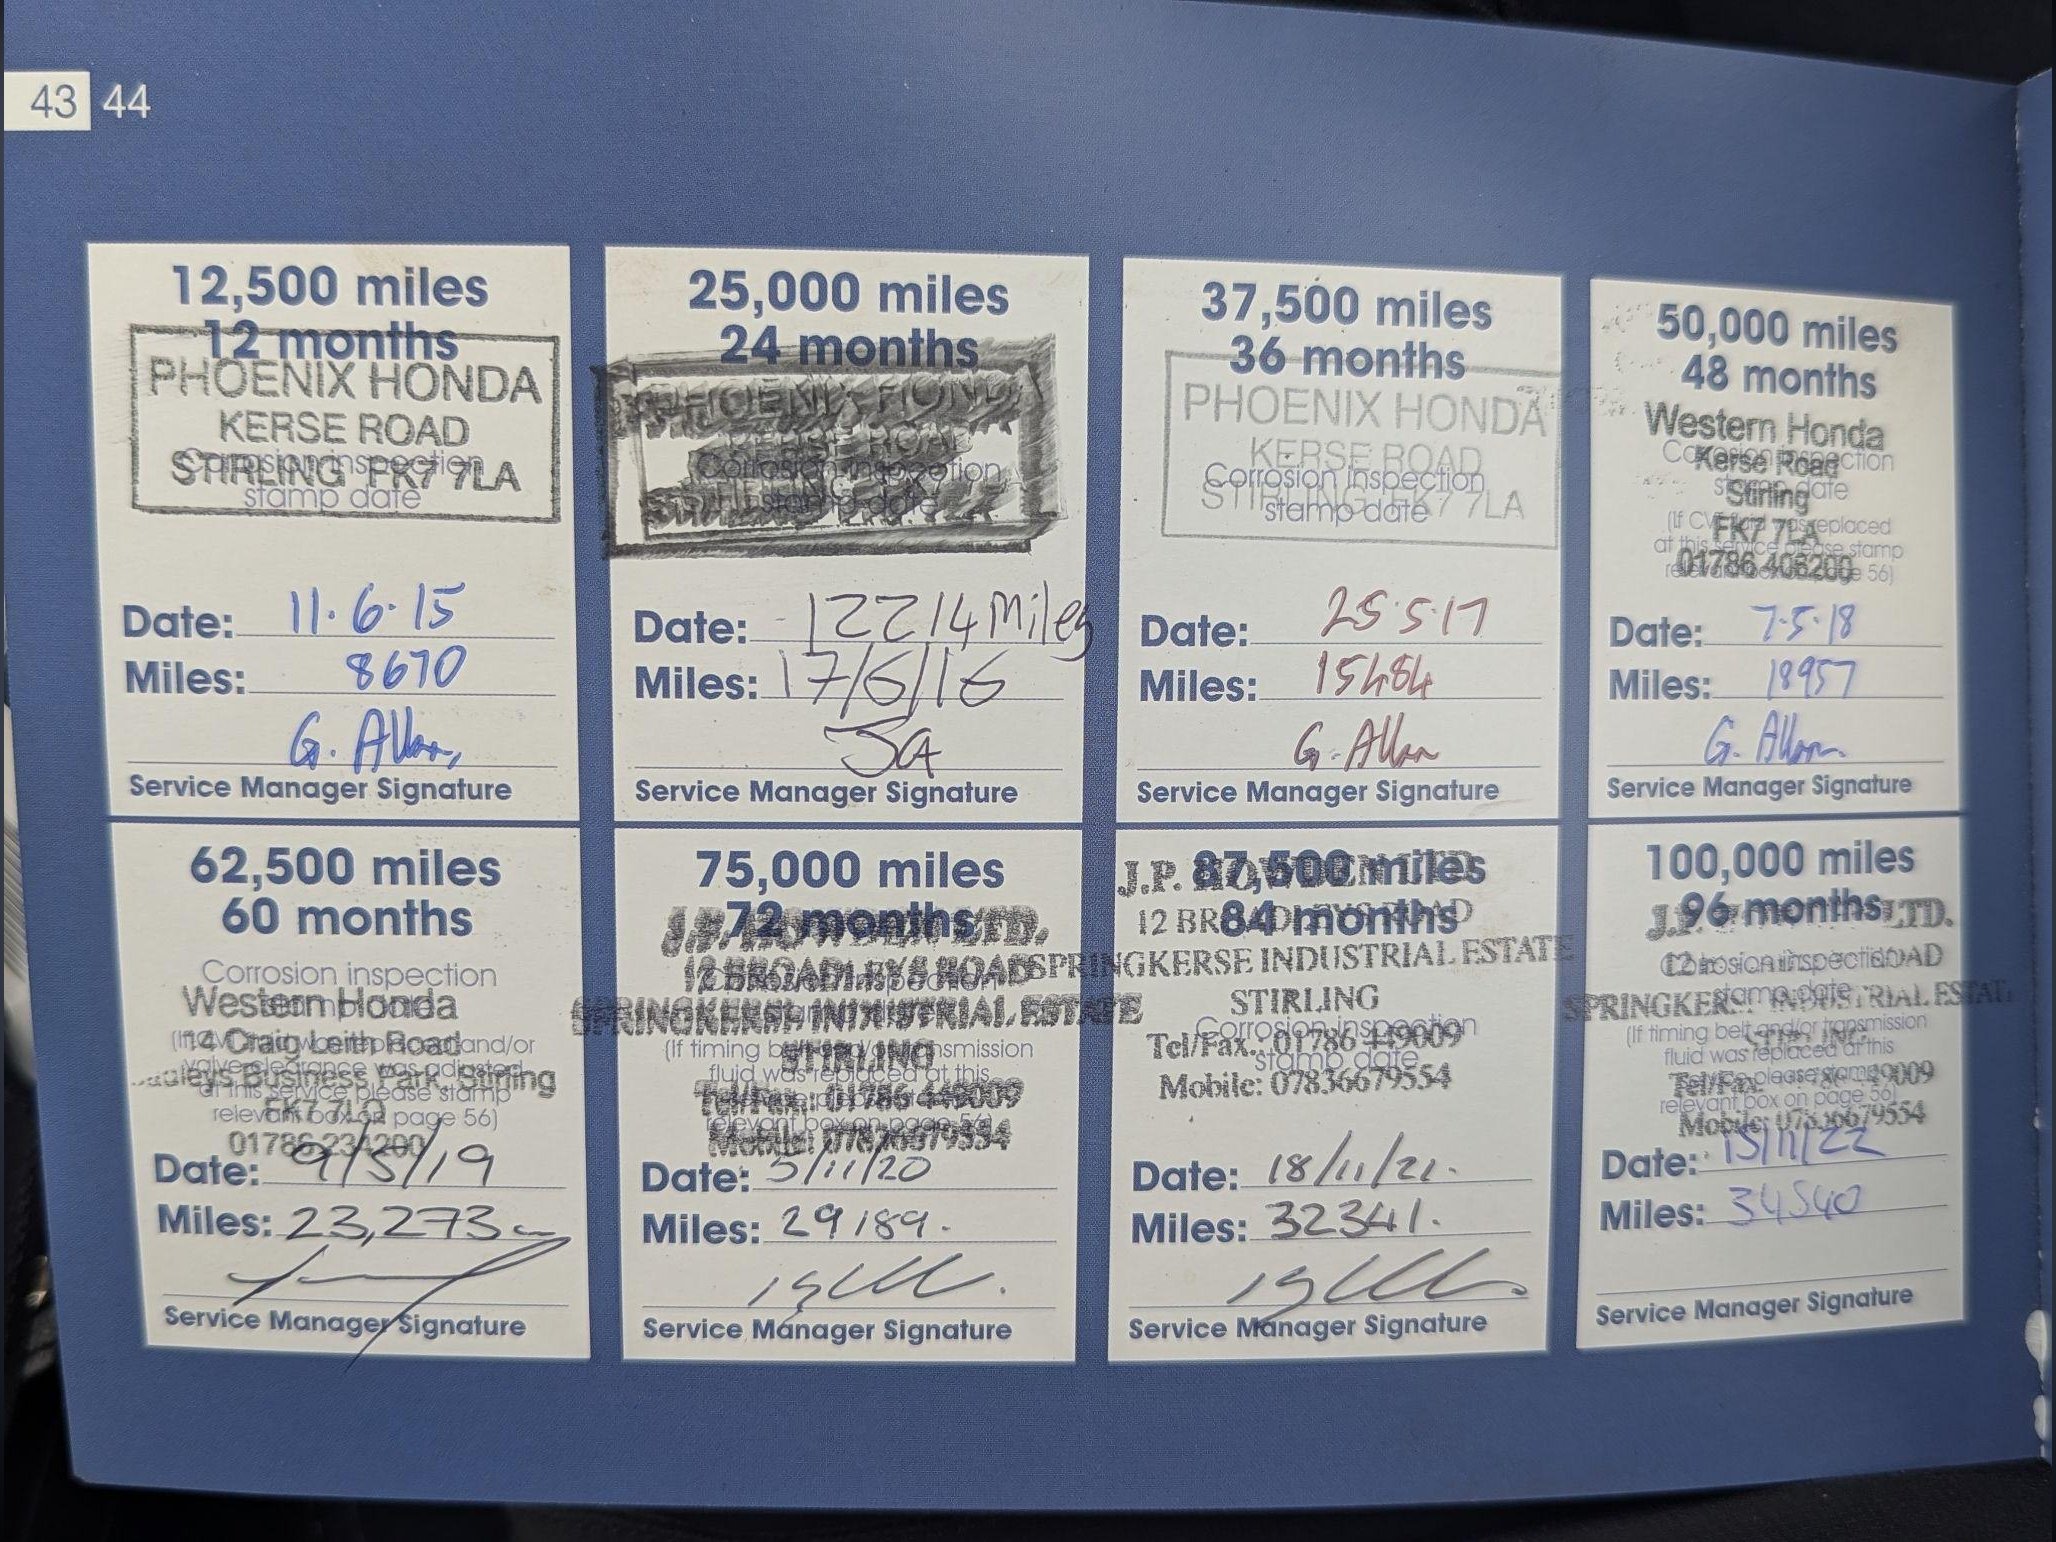 43 44
12,500 miles
12 months
PHOENIX HONDA
KERSE ROAD
STIRLING FK7 7LA
Corrosion inspection
stamp date
Date: 11.6.15
Miles: 8670
G. Allan
Service Manager Signature
25,000 miles
24 months
PHOENIX HONDA
KERSE ROAD
Corrosion inspection
stamp date
Date: 12214 Miles
Miles: 17/6/16
JA
Service Manager Signature
37,500 miles
36 months
PHOENIX HONDA
KERSE ROAD
Corrosion inspection
STIRLING FK7 7LA
stamp date
Date: 25.5.17
Miles: 15484
G. Allan
Service Manager Signature
50,000 miles
48 months
Western Honda
Corrosion inspection
Kerse Road
stamp date
Stirling
(If CVT fluid was replaced
FK7 7LA
at this service please stamp
relevant box on page 56)
01786 406200
Date: 7.5.18
Miles: 18957
G. Allan
Service Manager Signature
62,500 miles
60 months
Corrosion inspection
stamp date
Western Honda
14 Craig Leith Road
and/or
valve clearance was adjusted
Business Park, Stirling
at this service please stamp
FK7 7LQ
relevant box on page 56)
01786 234200
Date: 9/5/19
Miles: 23,273
Service Manager Signature
75,000 miles
72 months
J.P. HOWDEN LTD.
12 BROADLEYS ROAD
SPRINGKERSE INDUSTRIAL ESTATE
STIRLING
(If timing belt and/or transmission
fluid was replaced at this
Tel/Fax.: 01786 449009
relevant box on page 56)
Mobile: 07836679554
Date: 5/11/20
Miles: 29189.
Service Manager Signature
87,500 miles
J.P. HOWDEN LTD
84 months
12 BROADLEYS ROAD
SPRINGKERSE INDUSTRIAL ESTATE
STIRLING
Corrosion inspection
Tel/Fax.: 01786 449009
stamp date
Mobile: 07836679554
Date: 18/11/21.
Miles: 32341.
Service Manager Signature
100,000 miles
96 months
J.P. LTD.
Corrosion inspection
12 ROAD
stamp date
SPRINGKERSE INDUSTRIAL ESTAT
(If timing belt and/or transmission
fluid was replaced at this
service please stamp
Tel/Fax 01786 449009
relevant box on page 56)
Mobile: 07836679554
Date: 15/11/22
Miles: 34540
Service Manager Signature